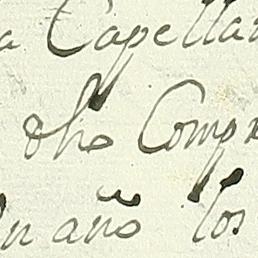 a Capellan
dho Comp
un año los